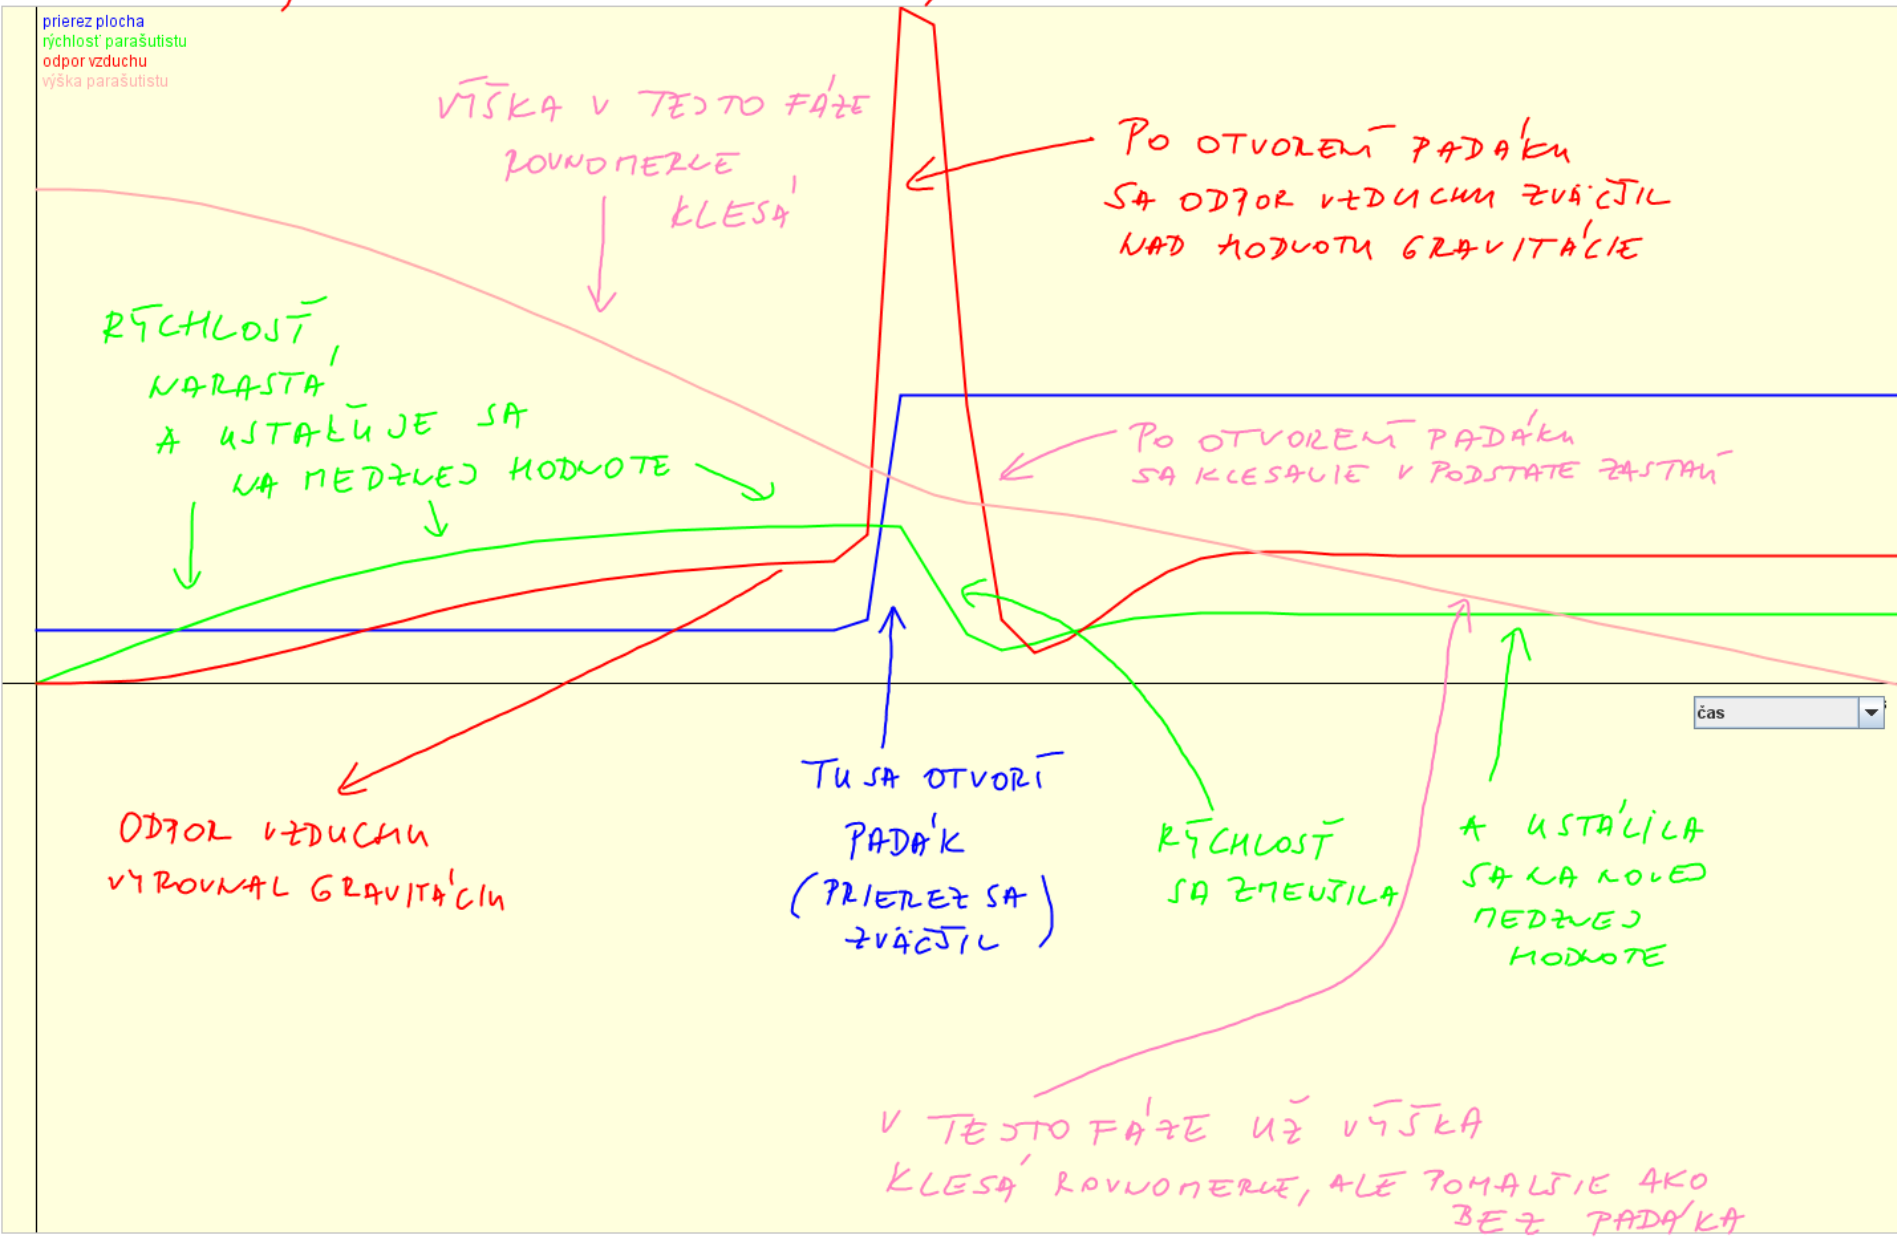 prierez plocha
rýchlosť parašutistu
odpor vzduchu
výška parašutistu
VÝŠKA V TEJTO FÁZE
ROVNOMERNE
KLESÁ
PO OTVORENÍ PADÁKU
SA ODPOR VZDUCHU ZVÄČŠIL
NAD HODNOTU GRAVITÁCIE
RÝCHLOSŤ
NARASTÁ
A USTAĽUJE SA
NA MEDZNEJ HODNOTE
PO OTVORENÍ PADÁKU
SA KLESANIE V PODSTATE ZASTAVÍ
čas
ODPOR VZDUCHU
VYROVNAL GRAVITÁCIU
TU SA OTVORÍ
PADÁK
(PRIEREZ SA
ZVÄČŠIL)
RÝCHLOSŤ
SA ZMENŠILA
A USTÁLILA
SA NA NOVEJ
MEDZNEJ
HODNOTE
V TEJTO FÁZE UŽ VÝŠKA
KLESÁ ROVNOMERNE, ALE POMALŠIE AKO
BEZ PADÁKA